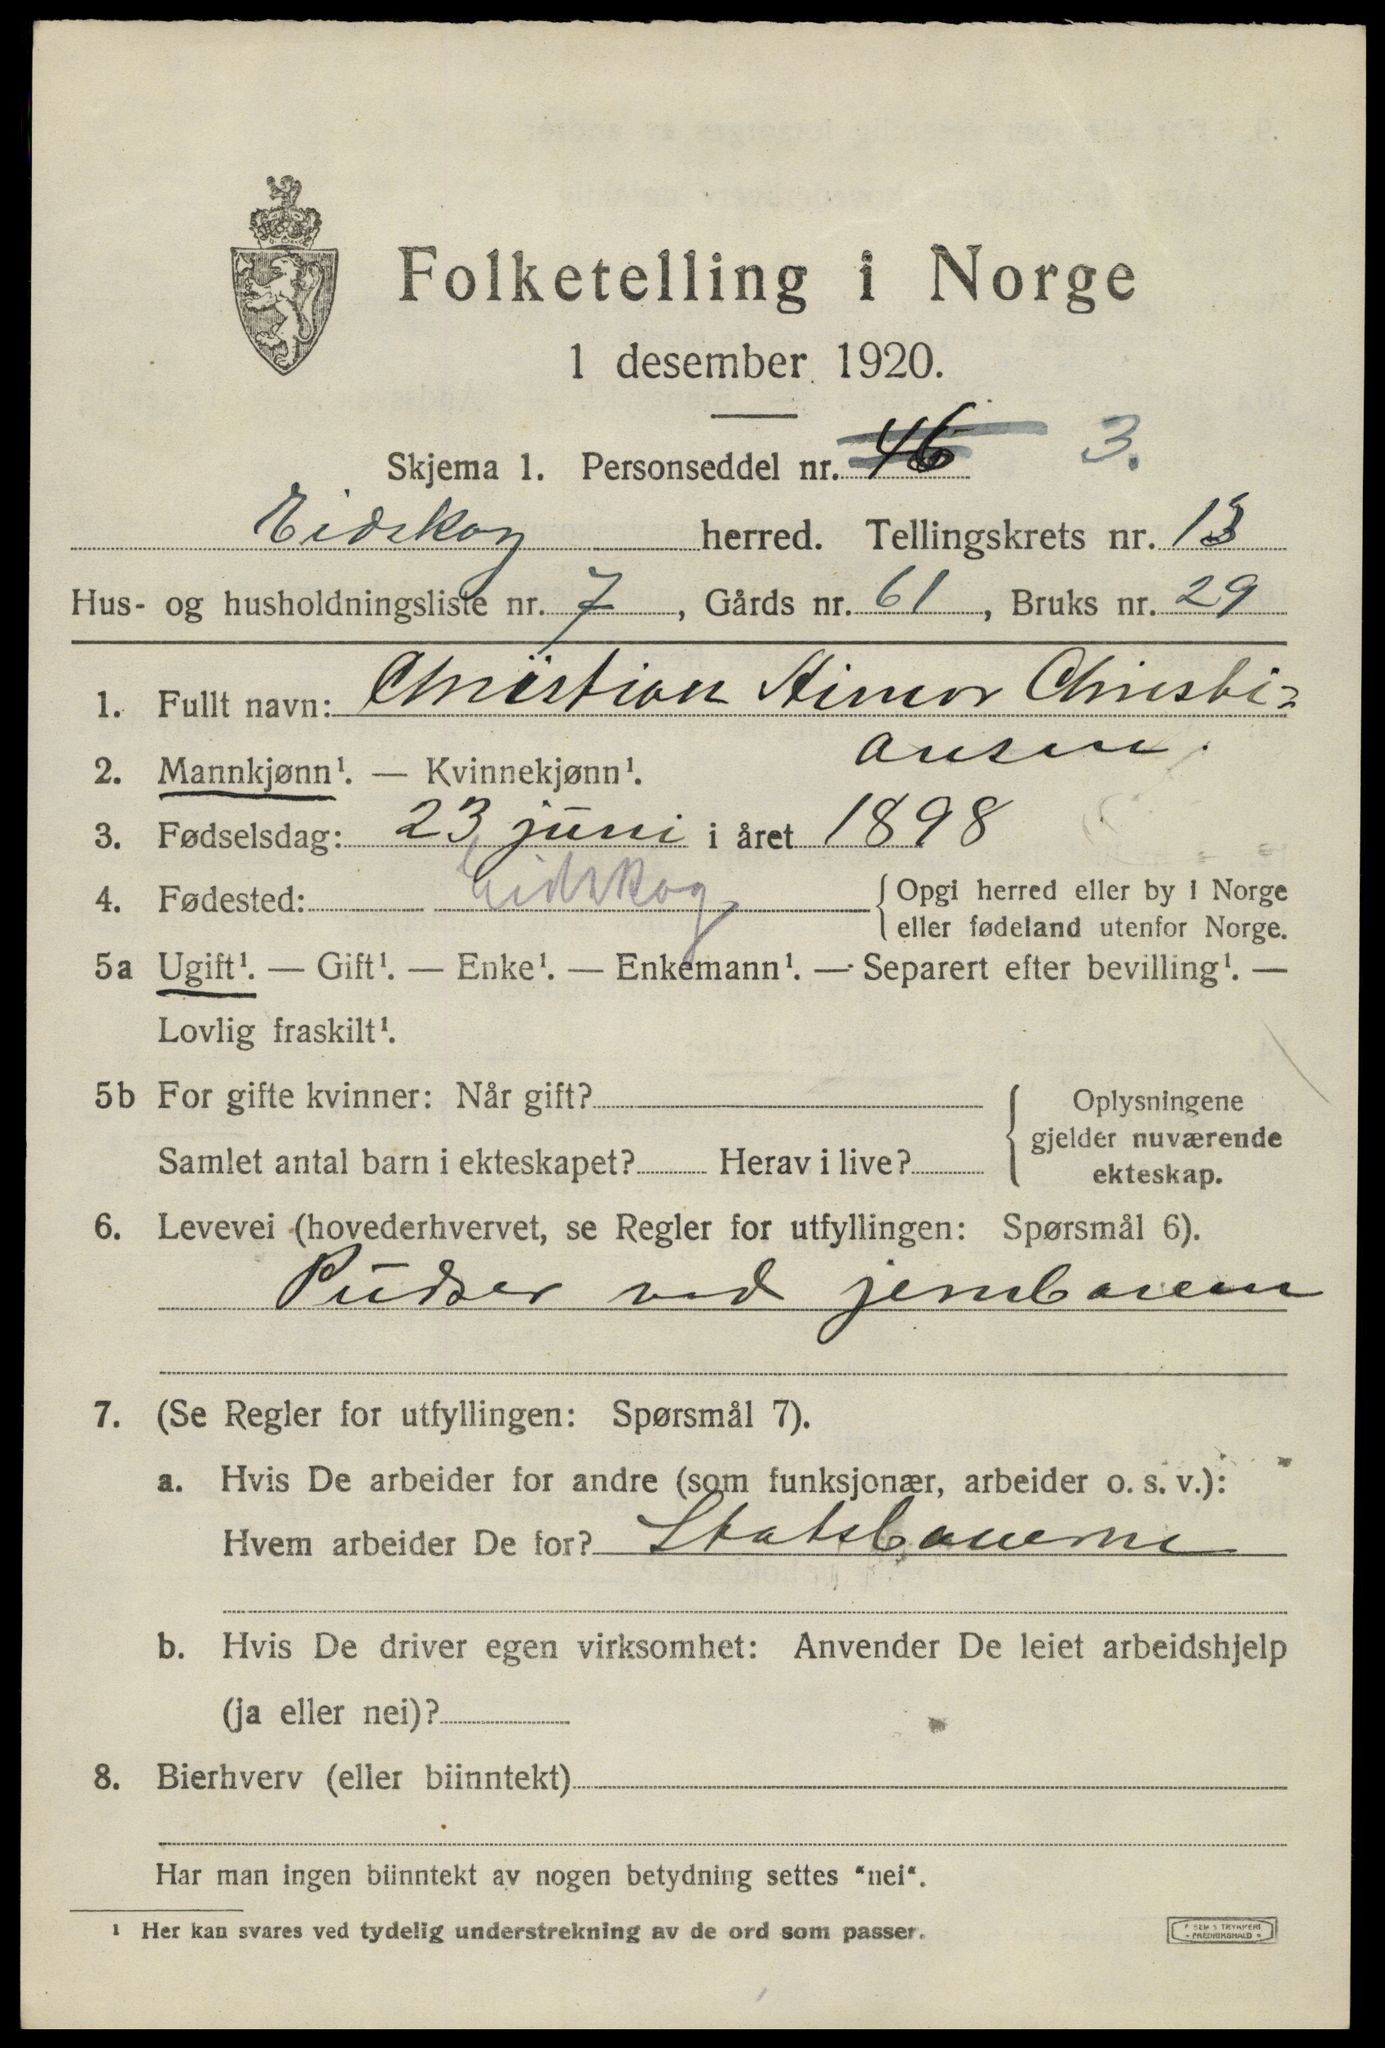 Folketelling i Norge
1 desember 1920.
Skjema 1. Personseddel nr. 46 3.
Eidskog herred. Tellingskrets nr. 13
Hus- og husholdningsliste nr. 7, Gårds nr. 61, Bruks nr. 29
1. Fullt navn: Christian Christi=
ansen.
2. Mannkjønn¹. — Kvinnekjønn¹.
3. Fødselsdag: 23 juni i året 1898
4. Fødested: Eidskog Opgi herred eller by i Norge
eller fødeland utenfor Norge.
5a Ugift¹. — Gift¹. — Enke¹. — Enkemann¹. — Separert efter bevilling¹. —
Lovlig fraskilt¹.
5b For gifte kvinner: Når gift? Oplysningene
gjelder nuværende
Samlet antal barn i ekteskapet? Herav i live? ekteskap.
6. Levevei (hovederhvervet, se Regler for utfyllingen: Spørsmål 6).
Pudser ved jernbanen
7. (Se Regler for utfyllingen: Spørsmål 7).
a. Hvis De arbeider for andre (som funksjonær, arbeider o. s. v.):
Hvem arbeider De for? Statsbanerne
b. Hvis De driver egen virksomhet: Anvender De leiet arbeidshjelp
(ja eller nei)?
8. Bierhverv (eller biinntekt)
Har man ingen biinntekt av nogen betydning settes "nei".
¹ Her kan svares ved tydelig understrekning av de ord som passer.
TRYKKERI
FREDRIKSHALD